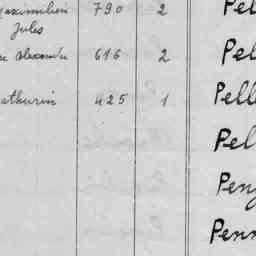 Maximilien 790 2 Pel
Jules
Alexandre 616 2 Pel
Mathurin 425 1 Pelle
Pel
Peng
Penn